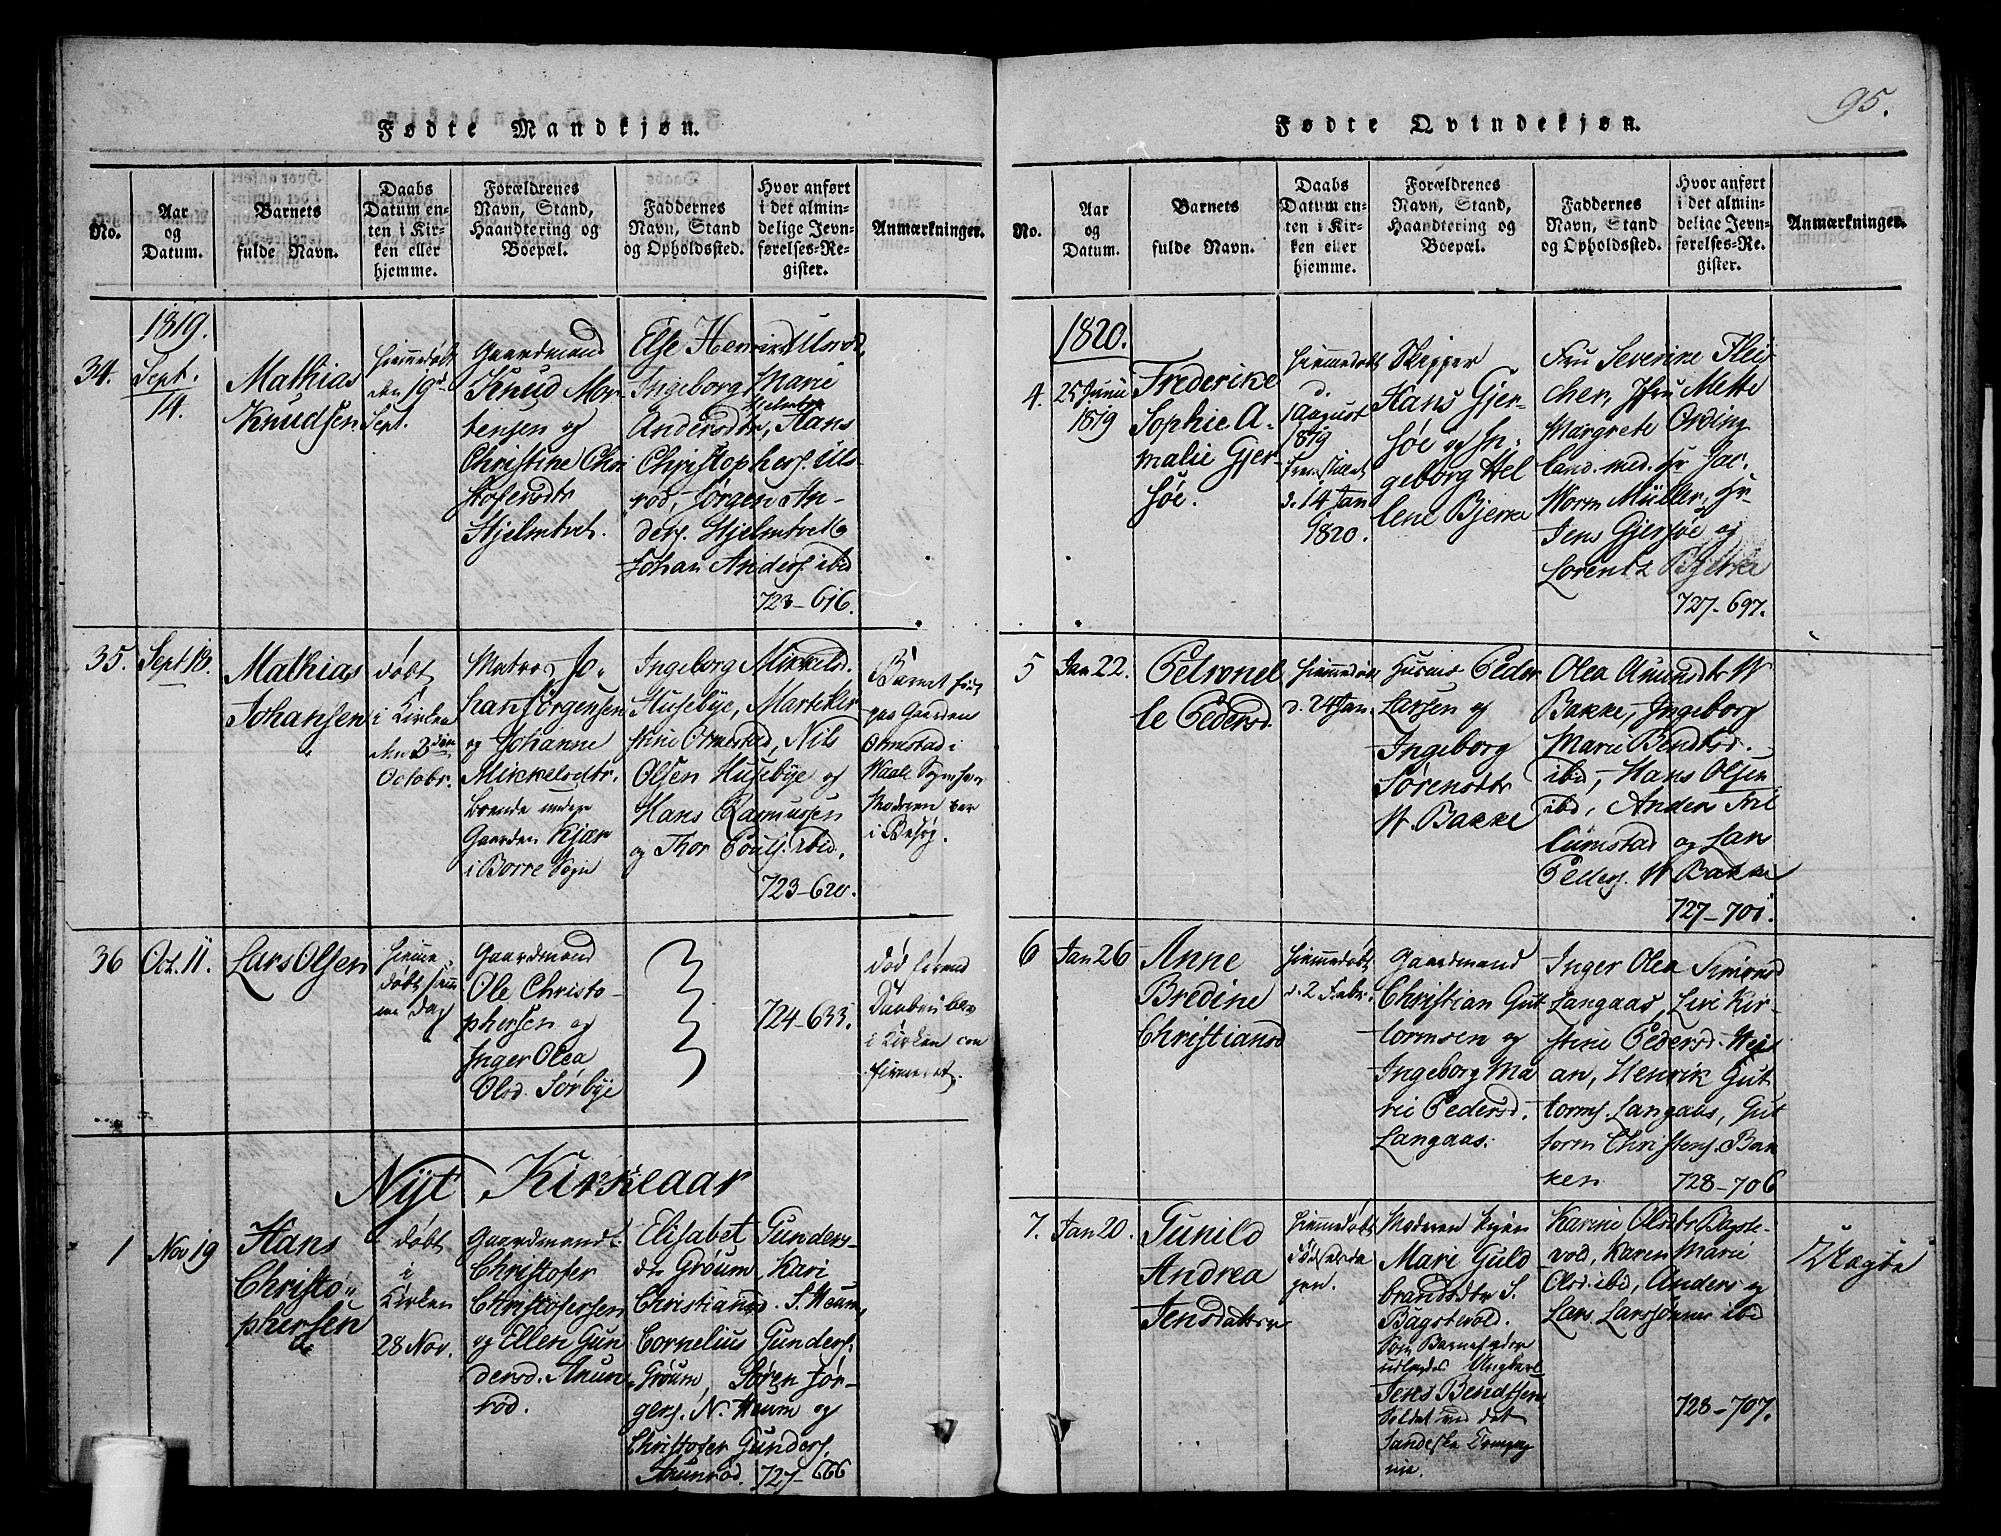 95.
Fødte Mandkjøn.
No.
Aar
og
Datum.
Barnets
fulde Navn.
Daabs
Datum en-
ten i Kir-
ken eller
hjemme.
Forældrenes
Navn, Stand,
Haandtering og
Boepæl.
Faddernes
Navn, Stand
og Opholdssted.
Hvor anført
i det almin-
delige Jevn-
førelses-Re-
gister.
Anmærkninger.
34.
1819.
Sept.
14.
Mathias
Knudsen
Hiemmedøbt
den 19de
Sept.
Gaardmand
Knud Mor
tensen og
Christine Chri
stofersdtr
Hjelmtvet.
Else Henriksd Ulsrod,
Ingeborg Marie
Hjelmtv
Andersdtr, Hans
Christophers. Uls-
rod, Jørgen An-
ders. Hjelmtvet &
Johan Anders. ibid
723-616.
35.
Sept 18.
Mathias
Johansen
døbt
i Kirken
den 3die
Octobr.
Matros Jo-
han Jørgensen
og Johanne
Mikkelsdtr.
boende under
Gaarden Kjær
i Borre Sogn
Ingeborg Mikkelsd.
Husebye, Marte Kir
stine Ormestad, Nils
Olsen Husebye og
Hans Rasmussen
og Thor Pouls. ibid.
723-620.
Barnet født
paa Gaarden
Ormestad i
Vaale Sogn hvor
Moderen var
i Besøg.
36
Oct. 11.
Lars Olsen
Hieme
døbt samm
me Dag
Gaardmand
Ole Christo-
phersen og
Inger Olea
Olsd. Sørbye
724-633.
død førend
Daaben blev
i Kirken con
firmeret.
Nyt Kirkeaar
1
Nov 19
Hans
Christo-
phersen
døbt
i
Kirken
28 Nov.
Gaardmand
Christofer
Christofersen
og Ellen Gun
dersd. Arun
rød.
Elisabet Gunders-
dr Grøum Kari
Christiansd. S. Heum,
Cornelius Gunders.
Grøum, Søren Jør-
gens. N. Heum og
Christofer Gunders.
Arunrod. 727-666
Fødte Qvindekjøn.
No.
Aar
og
Datum.
Barnets
fulde Navn.
Daabs
Datum en-
ten i Kir-
ken eller
hjemme.
Forældrenes
Navn, Stand,
Haandtering og
Boepæl.
Faddernes
Navn, Stand
og Opholdssted.
Hvor anført
i det almin-
delige Jevn-
førelses-Re-
gister.
Anmærkninger.
1820.
4.
25 Junii
1819
Frederike
Sophie A-
malie Gjer-
søe.
Hiemmedøbt
d.
1 August
1819
Fremstillet
d. 14 Jan
1820.
Skipper
Hans Gjer-
søe og In-
geborg Hel
lene Bjerke
Fru Severine Flei
cher, Jfru Mette
Margrete Ording
land. med. Hr Jac.
Worm Müller, Hr
Jens Gjersøe og
Lorentz Bjerke
727-697.
5
Jan 22.
Petronel
le Pedersd
Hiemmedøbt
d. 24 Jan.
Huusmd Peder
Larsen og
Ingeborg
Sørensdtr
N. Bakke
Olea Amundsdtr N
Bakke, Ingeborg
Marie Bendtsd.
ibid, Hans Olsen
ibd, Anders Fril
lumstad og Lars
Peders. N Bakke
727-701.
6
Jan 26
Anne
Bredine
Christiansd
Hiemmedøbt
d. 2 Febr.
Gaardmand
Christian Gut
tormsen og
Ingeborg Ma
rie Pedersd.
Langaas.
Inger Olea Simonsd
Langaas, Live Kir-
stine Pedersd. Wei
an, Henrik Gut
torms. Langaas, Gut
torm Christens. Bak
ken
728-706
7.
Jan 20.
Gunild
Andrea
Jensdatter
Hiemmedøbt
Fødselsda
gen.
Moderen Pigen
Mari Guld
brandsdtr S.
Bagstevold.
Som Barnefader
udlagdes Ungkarl
Jens Bendtsen
Soldat ved det
Sandeske Compag
nie.
Karine Olsdtr Bagste-
vod, Karen Marie
Olsd. ibid, Anders og
Lars Larssønner ibid
728-707.
Uægte